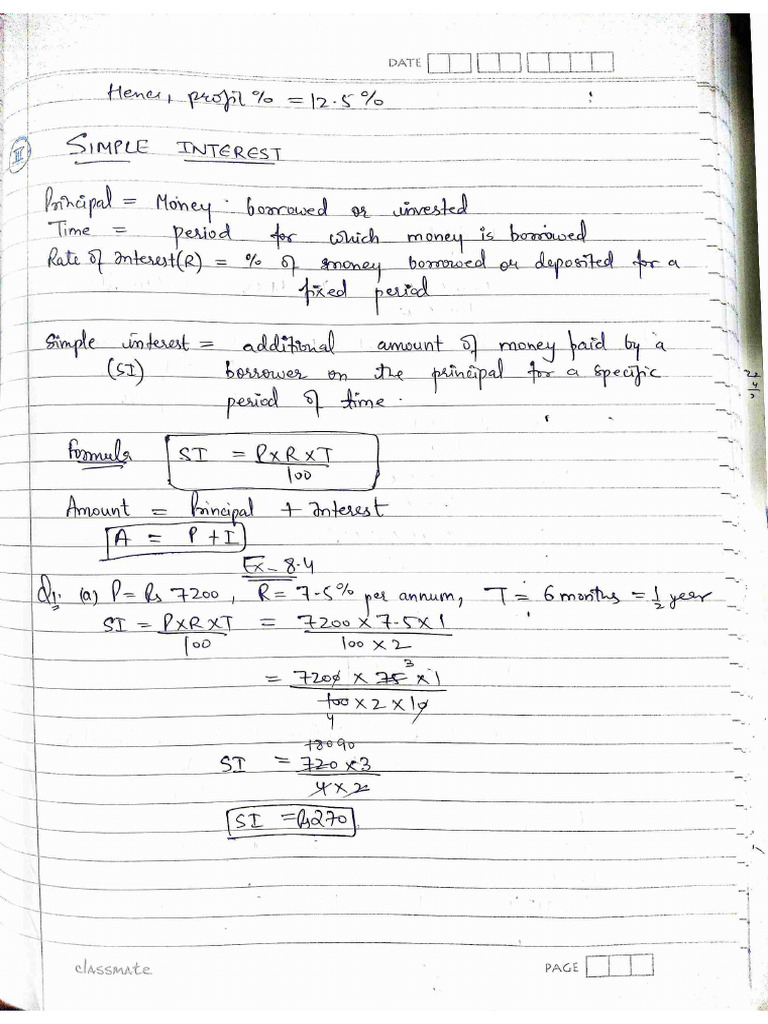 DATE
Hence, profit % = 12.5%
III SIMPLE INTEREST
Principal = Money borrowed or invested
Time = period for which money is borrowed
Rate of Interest(R) = % of money borrowed or deposited for a
fixed period
Simple interest = additional amount of money paid by a
(SI) borrower on the principal for a specific
period of time.
Formula SI = P×R×T
100
Amount = Principal + Interest
A = P+I
Ex-8.4
Q1. (a) P= Rs 7200, R= 7.5% per annum, T= 6 months = 1/2 year
SI = P×R×T = 7200 × 7.5 × 1
100 100 × 2
3
= 7200 × 75 × 1
100 × 2 × 10
4
180 90
SI = 720 × 3
4 × 2
SI = Rs 270
classmate PAGE